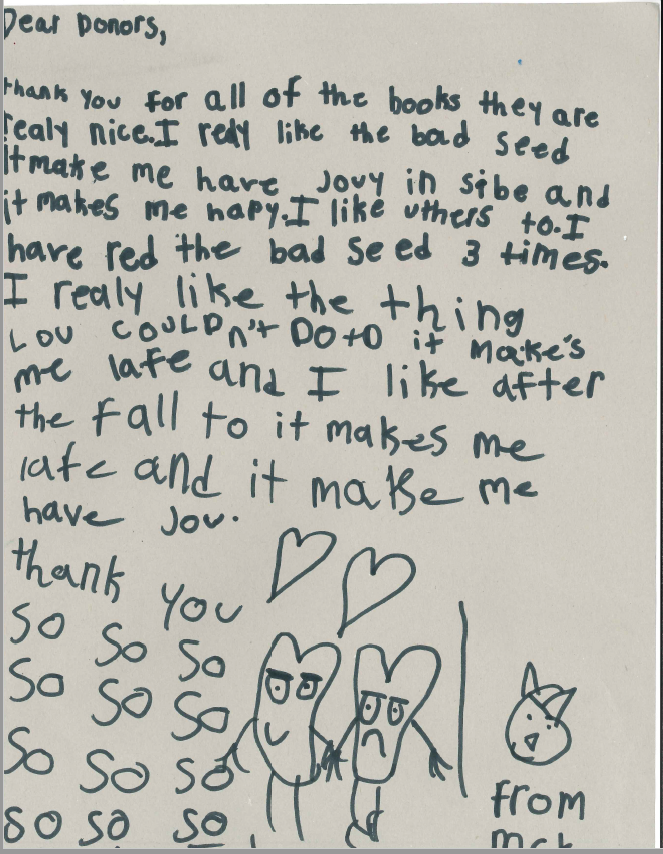 Dear Donors,
thank you for all of the books they are
realy nice. I redy like the bad seed
it make me have Jovy in sibe and
it makes me hapy. I like uthers to. I
have red the bad seed 3 times.
I realy like the thing
Lou COULDn't DO tO it make's
me lafe and I like after
the fall to it makes me
lafe and it make me
have Jov.
thank you
so so so
So So So
So So So
so so so
from